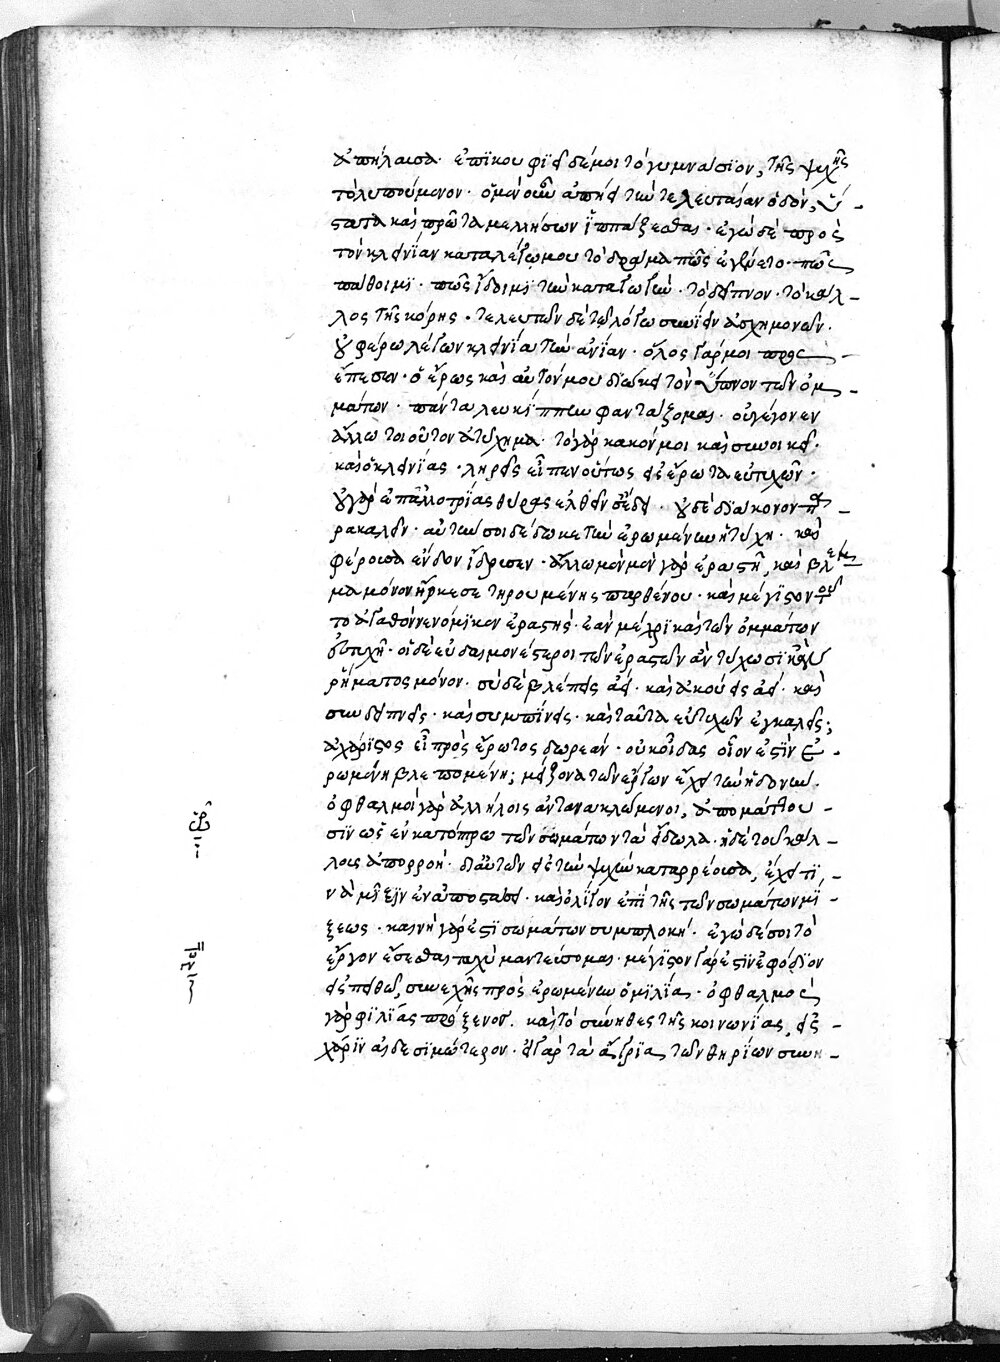 ἀπήλαυσα. ἐπικουφιεῖ δέ μοι τὸ γυμνάσιον, τῆς ψυχῆς
τὸ λυπούμενον. ὁ μὲν οὖν ἀπῄει τὴν τελευταίαν ὁδὸν, ὕ-
στατα καὶ πρῶτα μελλήσων ἱππάζεσθαι. ἐγὼ δὲ πρὸς
τὸν κλεινίαν καταλέγω μου τὸ δρᾶμα πῶς ἐγένετο. πῶς
πάθοιμι. πῶς ἴδοιμι τὴν καταγωγήν. τὸ δεῖπνον. τὸ κάλ-
λος τῆς κόρης. τελευτῶν δὲ τῷ λόγῳ συνίειν ἀσχημονῶν.
οὐ φέρω λέγων κλεινία τὴν ἀνίαν. ὅλος γάρ μοι προσ-
έπεσεν ὁ ἔρως καὶ αὐτόν μου διώκει τὸν ὕπνον τῶν ὀμ-
μάτων. πάντα λευκίππην φαντάζομαι. οὐ γέγονεν
ἄλλῳ τοιοῦτον ἀτύχημα. τὸ γὰρ κακόν μοι καὶ συνοικεῖ.
καὶ ὁ κλεινίας. ληρεῖς εἶπεν οὕτως εἰς ἔρωτα εὐτυχῶν.
οὐ γὰρ ἐπ' ἀλλοτρίας θύρας ἐλθεῖν σε δεῖ. οὐδὲ διάκονον πα-
ρακαλεῖν. αὐτήν σοι δέδωκε τὴν ἐρωμένην ἡ τύχη. καὶ
φέρουσα ἔνδον ἵδρυσεν. ἄλλῳ μὲν μὲν γὰρ ἐραστῇ, καὶ βλέμ-
μα μόνον ἤρκεσε τηρουμένης παρθένου. καὶ μέγιστον τοῦ-
το ἀγαθὸν νενόμικεν ἐραστής. ἐὰν μέχρι καὶ τῶν ὀμμάτων
εὐτυχῇ. οἱ δὲ εὐδαιμονέστεροι τῶν ἐραστῶν ἂν τύχωσι κἂν
ῥήματος μόνον. σὺ δὲ βλέπεις ἀεί. καὶ ἀκούεις ἀεί. καὶ
συνδειπνεῖς. καὶ συμπίνεις. καὶ ταῦτα εὐτυχῶν ἐγκαλεῖς;
ἀχάριστος εἶ πρὸς ἔρωτος δωρεάν. οὐκ οἶδας οἷόν ἐστιν ἐ-
ρωμένη βλεπομένη; μείζονα τῶν ἔργων ἔχει τὴν ἡδονήν.
ὀφθαλμοὶ γὰρ ἀλλήλοις ἀντανακλώμενοι, ἀπομάττου-
σιν ὡς ἐν κατόπτρῳ τῶν σωμάτων τὰ εἴδωλα. ἡ δὲ τοῦ κάλ-
λους ἀπορροή. δι' αὐτῶν εἰς τὴν ψυχὴν καταρρέουσα, ἔχει τι-
νὰ μῖξιν ἐν ἀποστάσει. καὶ ὀλίγον ἐπὶ τῆς τῶν σωμάτων μί-
ξεως. καινὴ γάρ ἐστι σωμάτων συμπλοκή. ἐγὼ δέ σοι τὸ
ἔργον ἔσεσθαι ταχὺ μαντεύομαι. μέγιστον γάρ ἐστιν ἐφόδιον
εἰς πειθώ, συνεχὴς πρὸς ἐρωμένην ὁμιλία. ὀφθαλμὸς
γὰρ φιλίας πρόξενος. καὶ τὸ σύνηθες τῆς κοινωνίας, εἰς
χάριν αἰδεσιμώτερον. εἰ γὰρ τὰ ἄγρια τῶν θηρίων συνη-